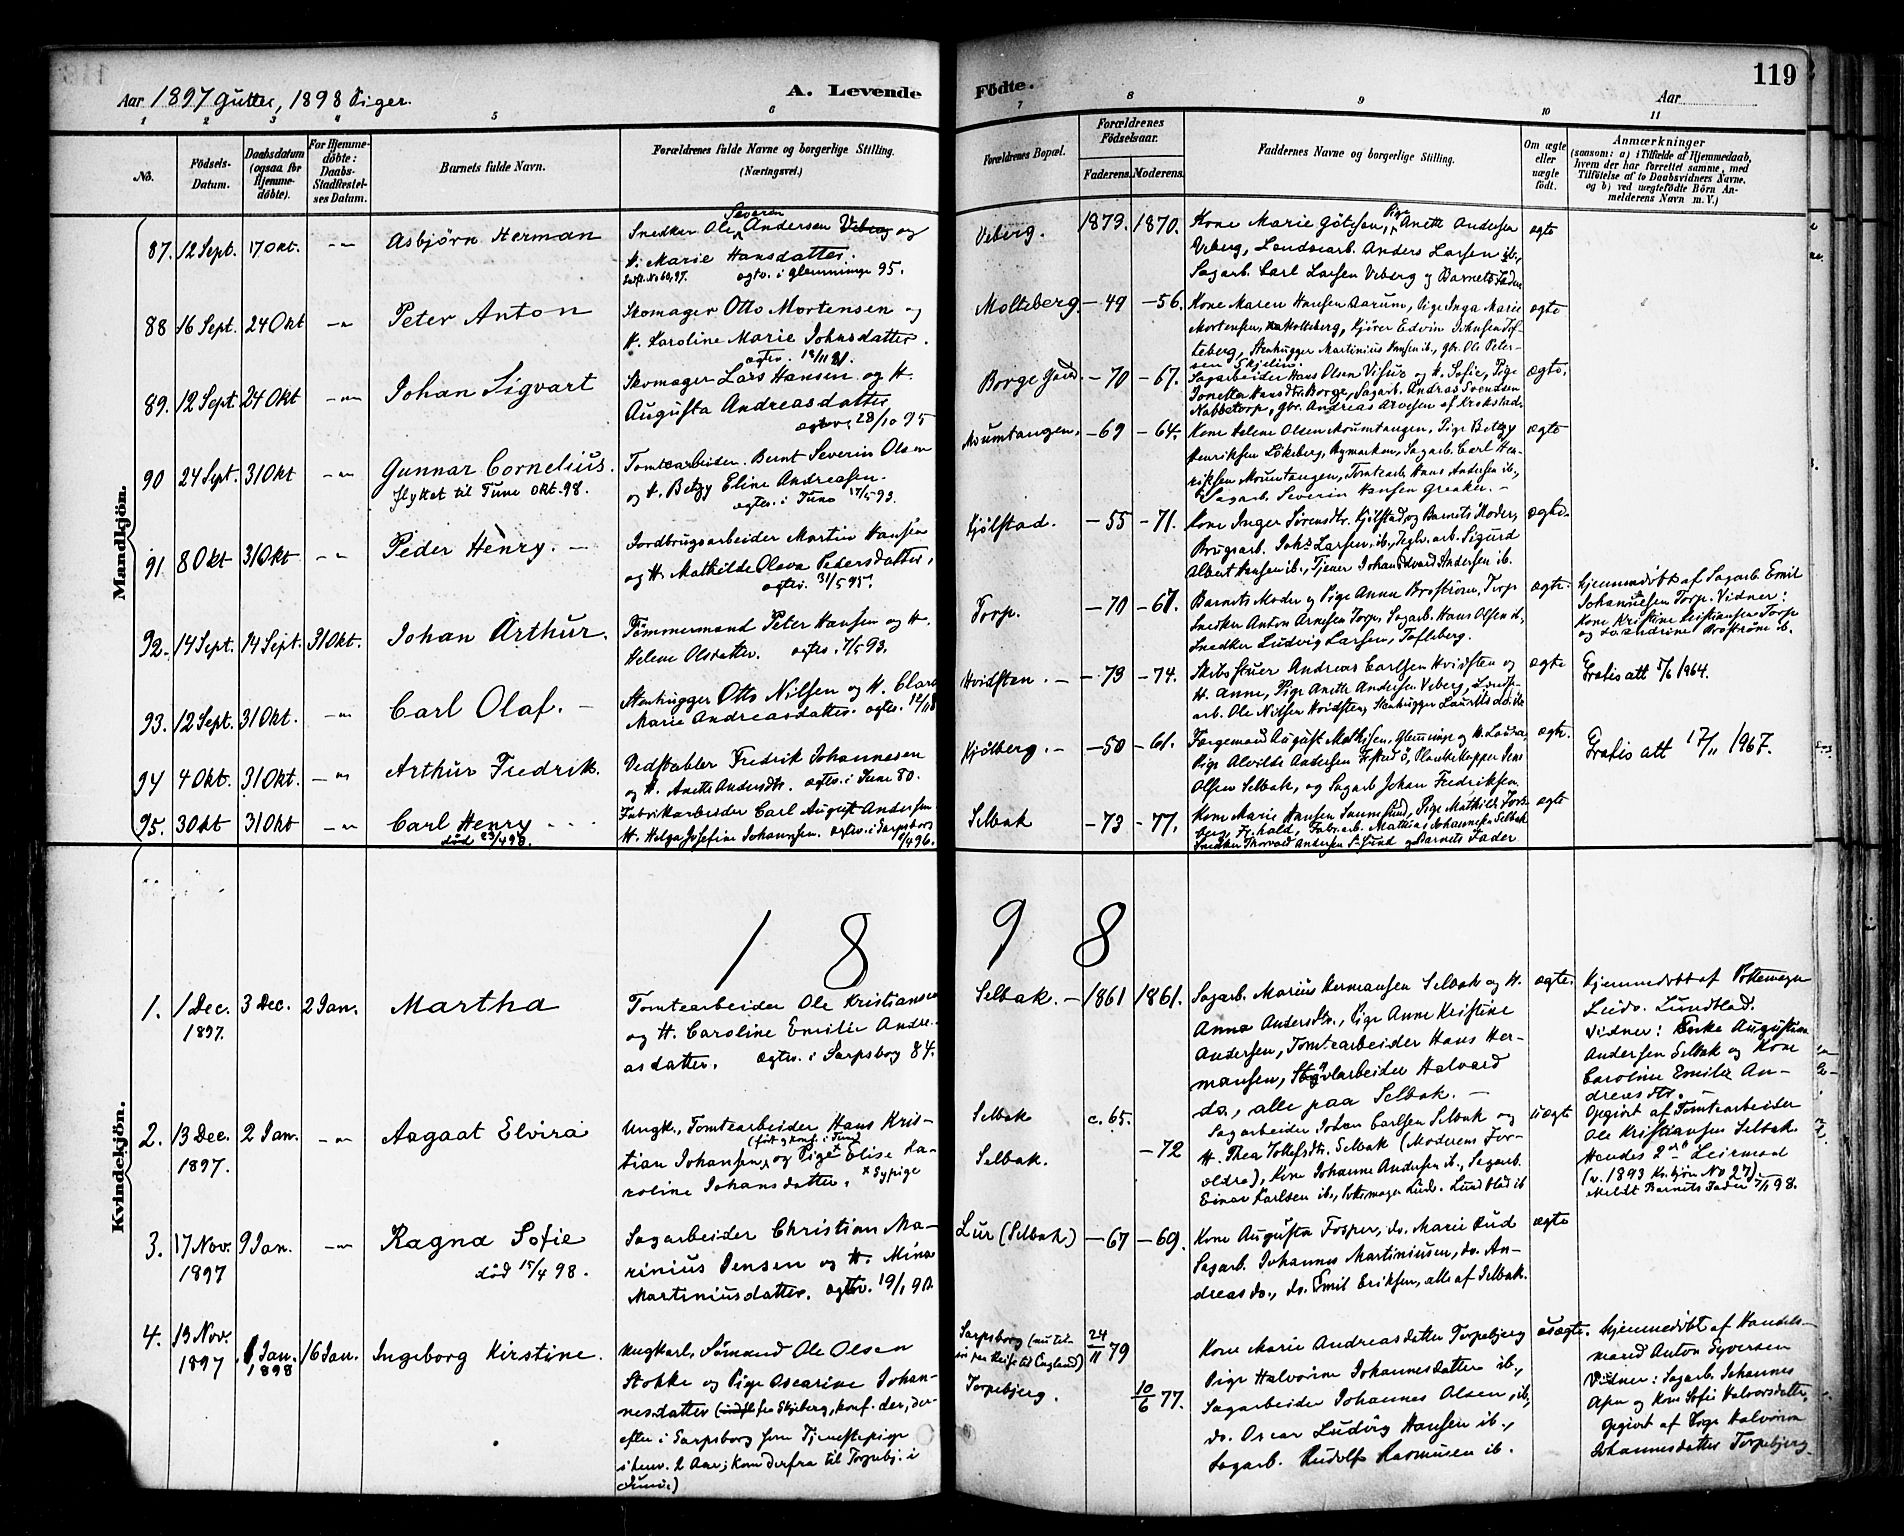 119
Aar 1897 Gutter, 1898 Piger.
A. Levende
Fødte.
Aar
1 2 3 4 5 6 7 8 9 10 11
No.
Födsels-Datum.
Daabsdatum (ogsaa for Hjemme-döbte).
For Hjemme-döbte: Daabs-Stadfæstel-ses Datum.
Barnets fulde Navn.
Forældrenes fulde Navne og borgerlige Stilling.
(Næringsvei.)
Forældrenes Bopæl.
Forældrenes Födselsaar.
Faderens. Moderens.
Faddernes Navne og borgerlige Stilling.
Om ægte eller uægte födt.
Anmærkninger
(saasom: a) i Tilfælde af Hjemmedaab,
hvem der har forrettet samme, med
Tilföielse af to Daabsvidners Navne,
og b) ved uægtefödte Börn An-
melderens Navn m. V.)
Mandkjön.
87. 12 Sept. 17 Okt. -"- Asbjørn Herman
Snedker Ole Severin Andersen Veberg og
H. Marie Hansdatter.
ægtev. i Glemminge 95.
Veberg. 1873. 1870.
Kone Marie Götesen, Pige Anette Andersen
Veberg, Landsarb. Anders Larsen ib.,
Sagarb. Carl Larsen Veberg og Barnets Fader
ægte
88 16 Sept. 24 Okt -"- Peter Anton
Skomager Otto Mortensen og
H. Karoline Marie Johnsdatter.
ægtev. 18/11 81.
Molteberg -49 -56.
Kone Maren Hansen Aarum, Pige Inga Marie
Mortensen, Molteberg, Kjører Edvin Johnsen Tof-
teberg, Stenhugger Martinius Hansen ib., gbr. Ole Peter-
sen Skjelin.
ægte
89. 12 Sept. 24 Okt -"- Johan Sigvart
Skomager Lars Hansen og H.
Augusta Andreasdatter
ægtev. 28/10 95
Borge Gaard. -70 -67.
Sagarbeider Hans Olsen Visur og H. Sofie, Pige
Jonette Hansdtr. Borge, Sagarb. Andreas Svendsen
Nabbetorp, gbr. Andreas Arvesen af Krokstad.
ægte.
90 24 Sept. 31 Okt -"- Gunnar Cornelius.
flyttet til Tune Okt. 98.
Tomtearbeider Bernt Severin Olsen
og H. Betzy Eline Andreasen.
ægtev. i Tune 17/5 93.
Moumtangen. -69 -64.
Kone Helene Olsen Moumtangen, Pige Betzy
Henriksen Lökeberg, Sagarb. Carl Hen-
riksen Moumtangen, Tomtearb. Hans Andersen ib.,
Sagarb. Severin Hansen Greaker. -
ægte
91 8 Okt 31 Okt -"- Peder Henry. -
Jordbrugsarbeider Martin Hansen
og H. Mathilde Olava Pedersdatter,
ægtev. 31/5 95.
Kjölstad. -55 -71.
Kone Inger Sörensdtr. Kjölstad, og Barnets Moder,
Brugsarb. Johs Larsen ib., Teglv.arb. Sigurd
Albert Hansen ib., Tjener Johan Edvard Andersen ib.
ægte.
92. 14 Sept. 14 Sept. 31 Okt. Johan Arthur.
Tømmermand Peter Hansen og H.
Helene Olsdatter. ægtev. 7/5 93.
Torp. -70 -67.
Barnets Moder og Pige Anna Broström, Torp
Snedker Anton Arnesen Torp, Sagarb. Hans Olsen ib,
Snedker Ludvig Larsen, Tofteberg.
ægte.
Hjemmedöbt af Sagarb. Emil
Johannesen Torp. Vidner:
Kone Kristine Kristiansen Torp
og Broström ib.
93. 12 Sept. 31 Okt. -"- Carl Olaf. -
Stenhugger Otto Nilsen og H. Clara
Marie Andreasdatter. ægtev.
Hvidsten. - -73 -74.
Skibsstuer Andreas Carlsen Hvidsten og
H. Anne, Pige Anette Andersen Veberg, Lands-
arb. Ole Nilsen Hvidsten, Stenhugger Laurits do. ib.
ægte
Gratis att 5/6 1964.
94 4 Okt. 31 Okt. -"- Arthur Fredrik.
Vedstabler Fredrik Johannesen
og H. Anette Andersdtr. ægtev. i Tune 80.
Kjölberg. - -50 -61.
Færgemand August Mathisen, Glemminge og H. Laura,
Pige Alvilde Andersen, Plankekapper Jens
Olsen Selbak, og Sagarb Johan Fredriksen
ægte.
Gratis att 17/11 1967.
95. 3 Okt 31 Okt -"- Carl Henry - -
död 23/4 98.
Fabrikarbeider Carl August Andersen
H. Helga Josefine Johannesen. ægtev. i Sarpsborg
6/4 96.
Selbak -73 -77.
Kone Marie Hansen, Pige Mathilde Fors-
berg Fr.hald, Fabr.arb. Mathias Johannesen Selbak
Snedker Thorvald Andersen og Barnets Fader
ægte
1 8 9 8
Kvindekjön.
1. 1 Dec. 1897. 3 Dec. 2 Jan. Martha
Tomtearbeider Ole Kristiansen
og H. Caroline Emilie Andre-
asdatter. Ægtev. i Sarpsborg 84.
Selbak. - 1861 1861.
Sagarb. Marius Hermansen Selbak og H.
Anna Andersdtr., Pige Anne Kristine
Andersen, Tomtearbeider Hans Her-
mansen, arbeider Halvard
do., alle paa Selbak. -
ægte.
Hjemmedöbt af Pottemager
Ludv. Lundblad.
Vidner: Enke Augustina
Andersen Selbak og Kone
Caroline Emilie An-
dreasdtr.
2. 13 Dec. 1897. 2 Jan. -"- Aagaat Elvira
Ungk., Tomtearbeider Hans Kris-
tian Johansen, (födt og konf. i Tune) og Pige* Elise Ka-
roline Johansdatter. * Sypige
Selbak c. 65.
Selbak. -72
Sagarbeider Johan Carlsen Selbak og
H. Thea Tollefsdtr. Selbak (Moderens For-
ældre), Kone Johanne Andersen ib., Sagarb.
Einar Karlsen ib., Pottemager Ludv. Lundblad ib
uægte
Opgivet af Tomtearbeider
Ole Kristiansen Selbak.
Hendes 2det Leiermaal
(v. 1893 Kv.kjön No 27).
Meldt Barnets Fader 98.
3. 17 Nov. 1897 9 Jan. -"- Ragna Sofie
död 15/4 98.
Sagarbeider Christian Ma-
rinius Jensen og H. Mina
Martiniusdatter. ægtev. 19/1 90.
Lur (Selbak) -67 -69.
Kone Augusta Fosper, do. Marie Rud
Sagarb. Johannes Martiniusen, do. An-
dreas do., do. Emil Eriksen, alle af Selbak.
ægte
4. 13 Nov. 1897 1 Jan. 1898 16 Jan. Ingeborg Kirstine.
Ungkarl, Sömand Ole Olsen
Stokke og Pige Oscarine Johan-
nesdatter (fra Skjeberg, konf. der, der-
efter i Sarpsborg som Tjenestepige
i henv. 2 Aar; kom derfra til Torpebj. i
Sarpsborg (nu til-
sös paa Reise til England) 24/11 79
Torpebjerg. 10/6 77.
Kone Marie Andreasdatter Torpebjerg
Pige Halvorine Johannesdatter ib.,
Sagarbeider Johannes Olsen, ib,
do. Oscar Ludvig Hansen ib.,
Sagarb. Rudolf Rasmusen ib.
uægte.
Hjemmedöbt af Handels-
mand Anton Syversen
Vidner: Sagarb. Johannes
Olsen og Kone Sofie Halvorsdatter,
Opgivet af Pige Halvorine
Johannesdatter Torpebjerg.